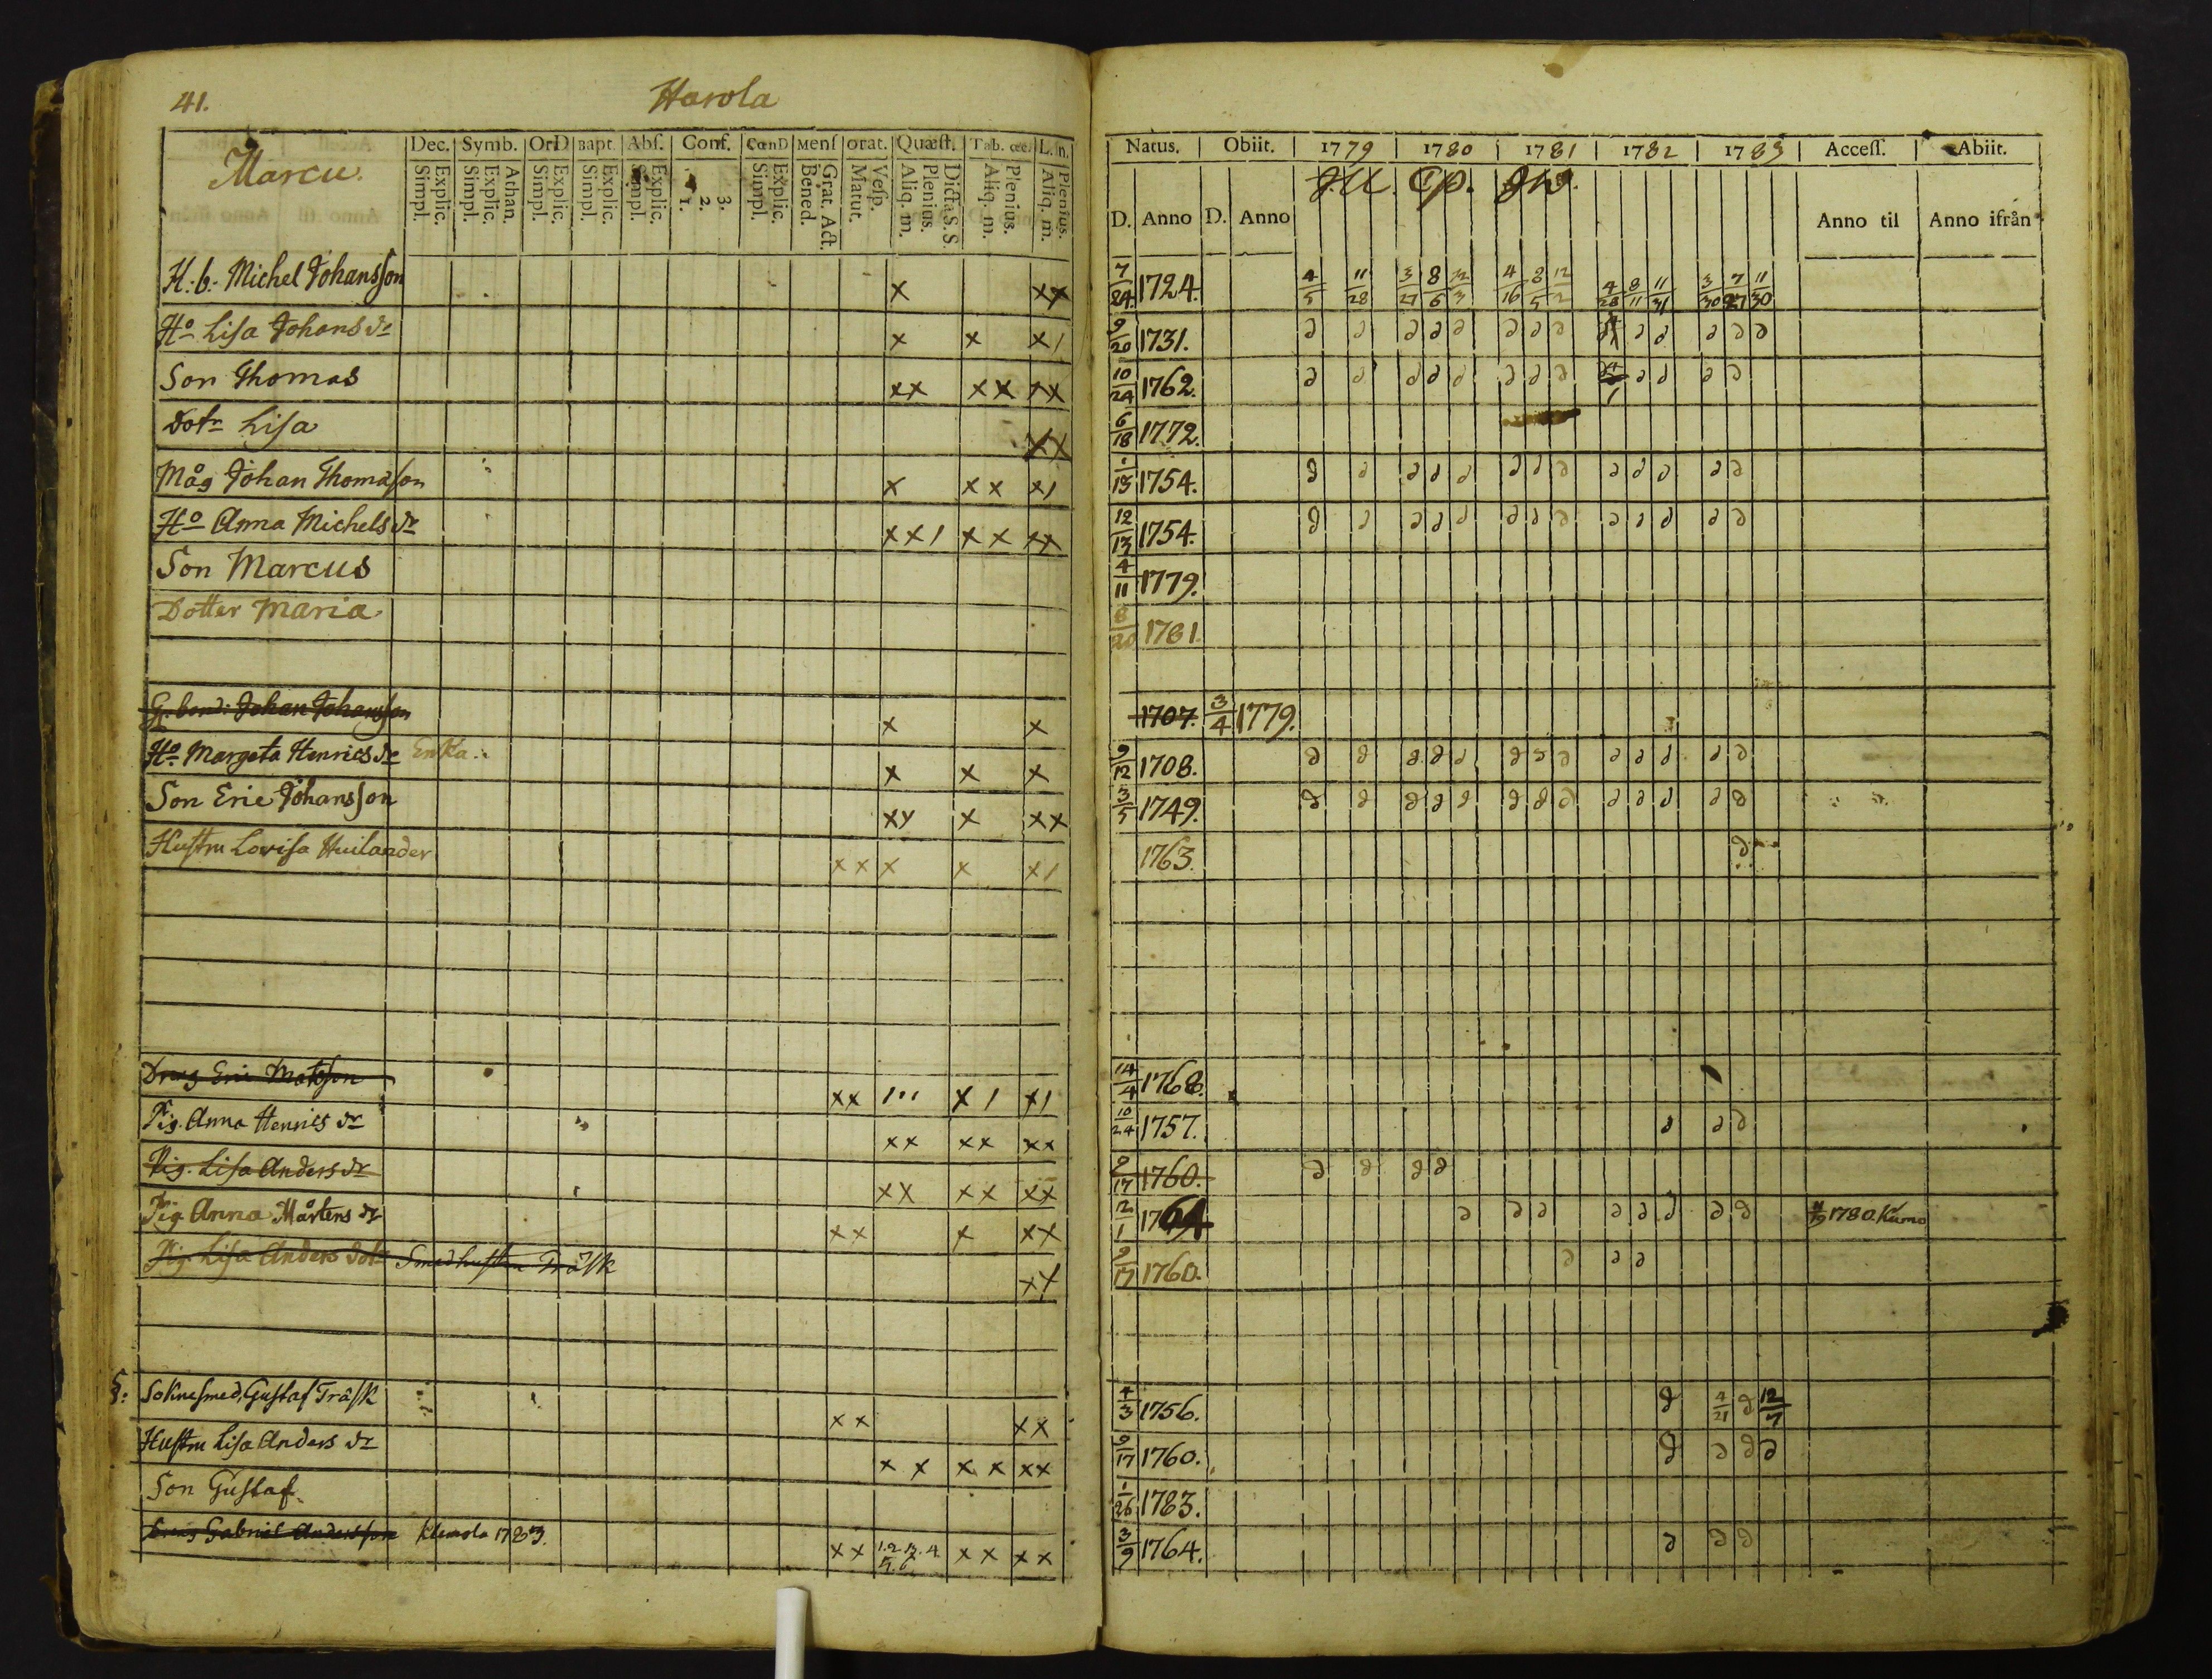 41.
Harola
Marcu.
Dec. Symb. OrD Bapt. Abs. Conf. CœnD Mens Orat. Quæst. Tab. œc. L. in.
Explic. Simpl. Athan. Explic. Simpl. Explic. Simpl. Explic. Simpl. Explic. Simpl. 3. 2. 1. Explic. Simpl. Grat. Act. Bened. Vesp. Matut. Dicta S. S. Plenius. Aliq. m. Plenius. Aliq. m. Plenius. Aliq. m.
H. b. Michel Johansson x xx
Ho Lisa Johans dr x x x1
Son Thomas xx xx xx
Dotr Lisa xx
Måg Johan Thomasson x xx x1
Ho Anna Michels dr xx1 xx xx
Son Marcus
Dotter Maria
G. bond: Johan Johansson x x
Ho Margeta Henrics dr Enka x x x
Son Eric Johansson xx x xx
Hustru Lovisa Huilander xx x x x1
Dreng Eric Matsson xx 1 x1 x1
Pig. Anna Henrics dr xx xx xx
Pig. Lisa Anders dr xx xx xx
Pig Anna Mårtens dr xx x xx
Pig. Lisa Anders dotr Smed hustru Träsk xx
S: Soknesmed Gustaf Träsk xx xx
Hustru Lisa Anders dr xx xx xx
Son Gustaf
Dreng Gabriel Andersson Klemola 1783. xx 1.2.3.4. 5.6 xx xx
Natus. Obiit. 1779 1780 1781 1782 1783 Access. Abiit.
D. Anno D. Anno Anno til Anno ifrån
7/24 1724. 4/5 11/28 3/27 8/6 12/3 4/16 8/5 12/2 4/28 8/11 11/31 3/30 7/27 11/30
9/20 1731.
10/24 1762.
6/18 1772.
1/13 1754.
12/13 1754.
4/11 1779.
8/20 1781.
1707. 3/4 1779.
9/12 1708.
3/5 1749.
1763.
14/4 1768.
10/24 1757.
9/17 1760.
12/1 1764 1780. Kumo
9/17 1760.
4/3 1756. 4/21 12/7
9/17 1760.
1/26 1783.
3/9 1764.